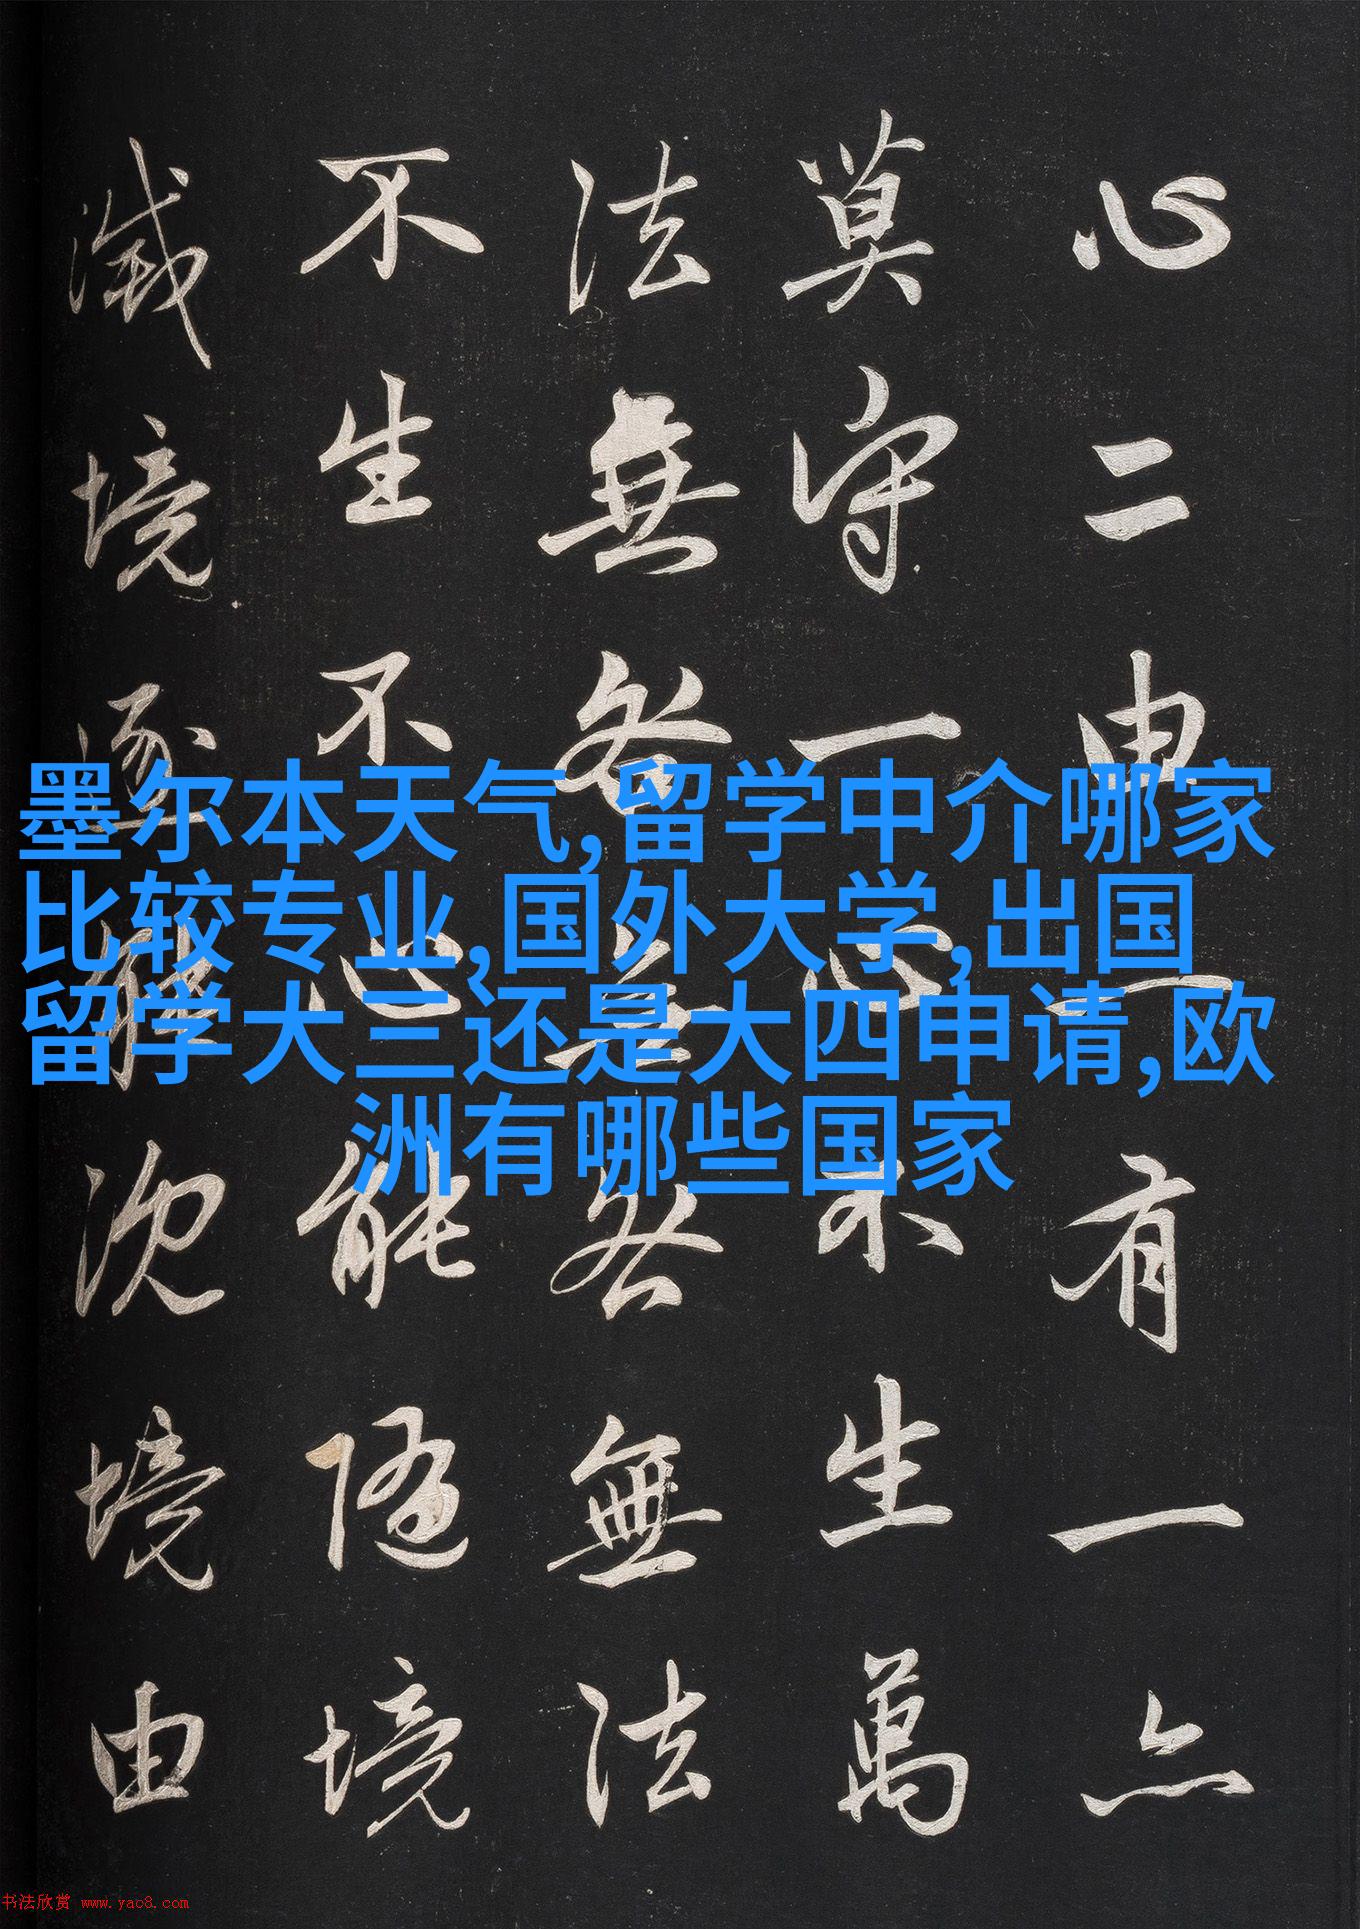 心二由一有一亦
莫守一心不生萬
法無咎無咎無法
不生不心能隨境
滅境逐能沈境由
墨尔本天气,留学中介哪家
比较专业,国外大学,出国
留学大三还是大四申请,欧
洲有哪些国家
书法欣赏 www.yac8.com